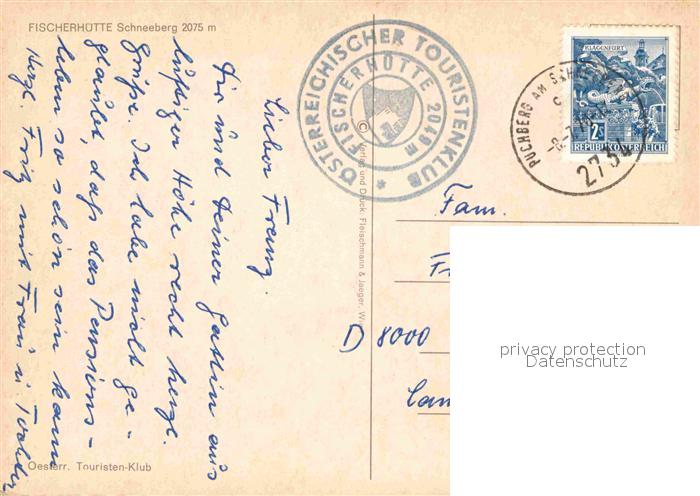 FISCHERHÜTTE Schneeberg 2075 m
Lieber Franz.
Dir und Deiner Gattin aus
luftiger Höhe recht herzl.
Grüße. Ich habe nicht ge-
glaubt, daß das Pensions-
leben so schön sein kann
Herzl. Fritz mit Frau u. Tochter
Oesterr. Touristen-Klub
ÖSTERREICHISCHER TOURISTENKLUB
FISCHERHÜTTE 2049 m
© Verlag und Druck: Fleischmann & Jaeger, Wi
KLAGENFURT
2 S
REPUBLIK ÖSTERREICH
PUCHBERG AM SCHNEE
273
Fam.
D 8000
privacy protection
Datenschutz